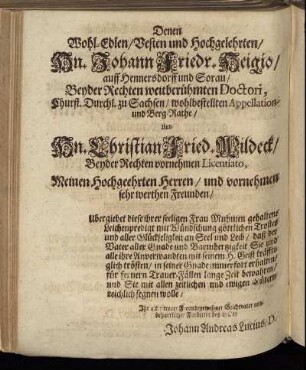 Denen
Wohl-Edlen/ Vesten und Hochgelehrten/
Hn. Johann Friedr. Heigio/
auff Hennersdorff und Sorau/
Beyder Rechten weitberühmten Doctori,
Churst. Durchl. zu Sachsen/ wohlbestellten Appellation-
und Berg-Rathe/
Und
Hn. Christian Fried. Wildeck/
Beyder Rechten vornehmen Licentiato,
Meinen Hochgeehrten Herren/ und vornehmen
sehr werthen Freunden/
übergiebet diese ihrer seeligen Frau Muhmen gehaltene
Leichenpredigt mit Wündschung göttlichen Trostes
und aller Glückseligkeit an Seel und Leib/ daß der
Vater aller Gnade und Barmhertzigkeit Sie und
alle ihre Anverwandten mit seinem H. Geist kräfftig-
glich trösten/ in seiner Gnade immerfort erhalten/
für fernern Trauer-Fällen lange Zeit bewahren/
und Sie mit allen zeitlichen und ewigen Gütern
reichlich segnen wolle/
beharrlicher Fürbitter bey GOtt
Johann Andreas Lucius, D.